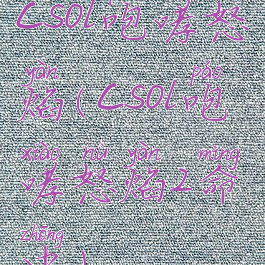 CSOL咆哮怒
yàn páo
焰(CSOL咆
xiào nù yàn mìng
哮怒焰2命
zhēng